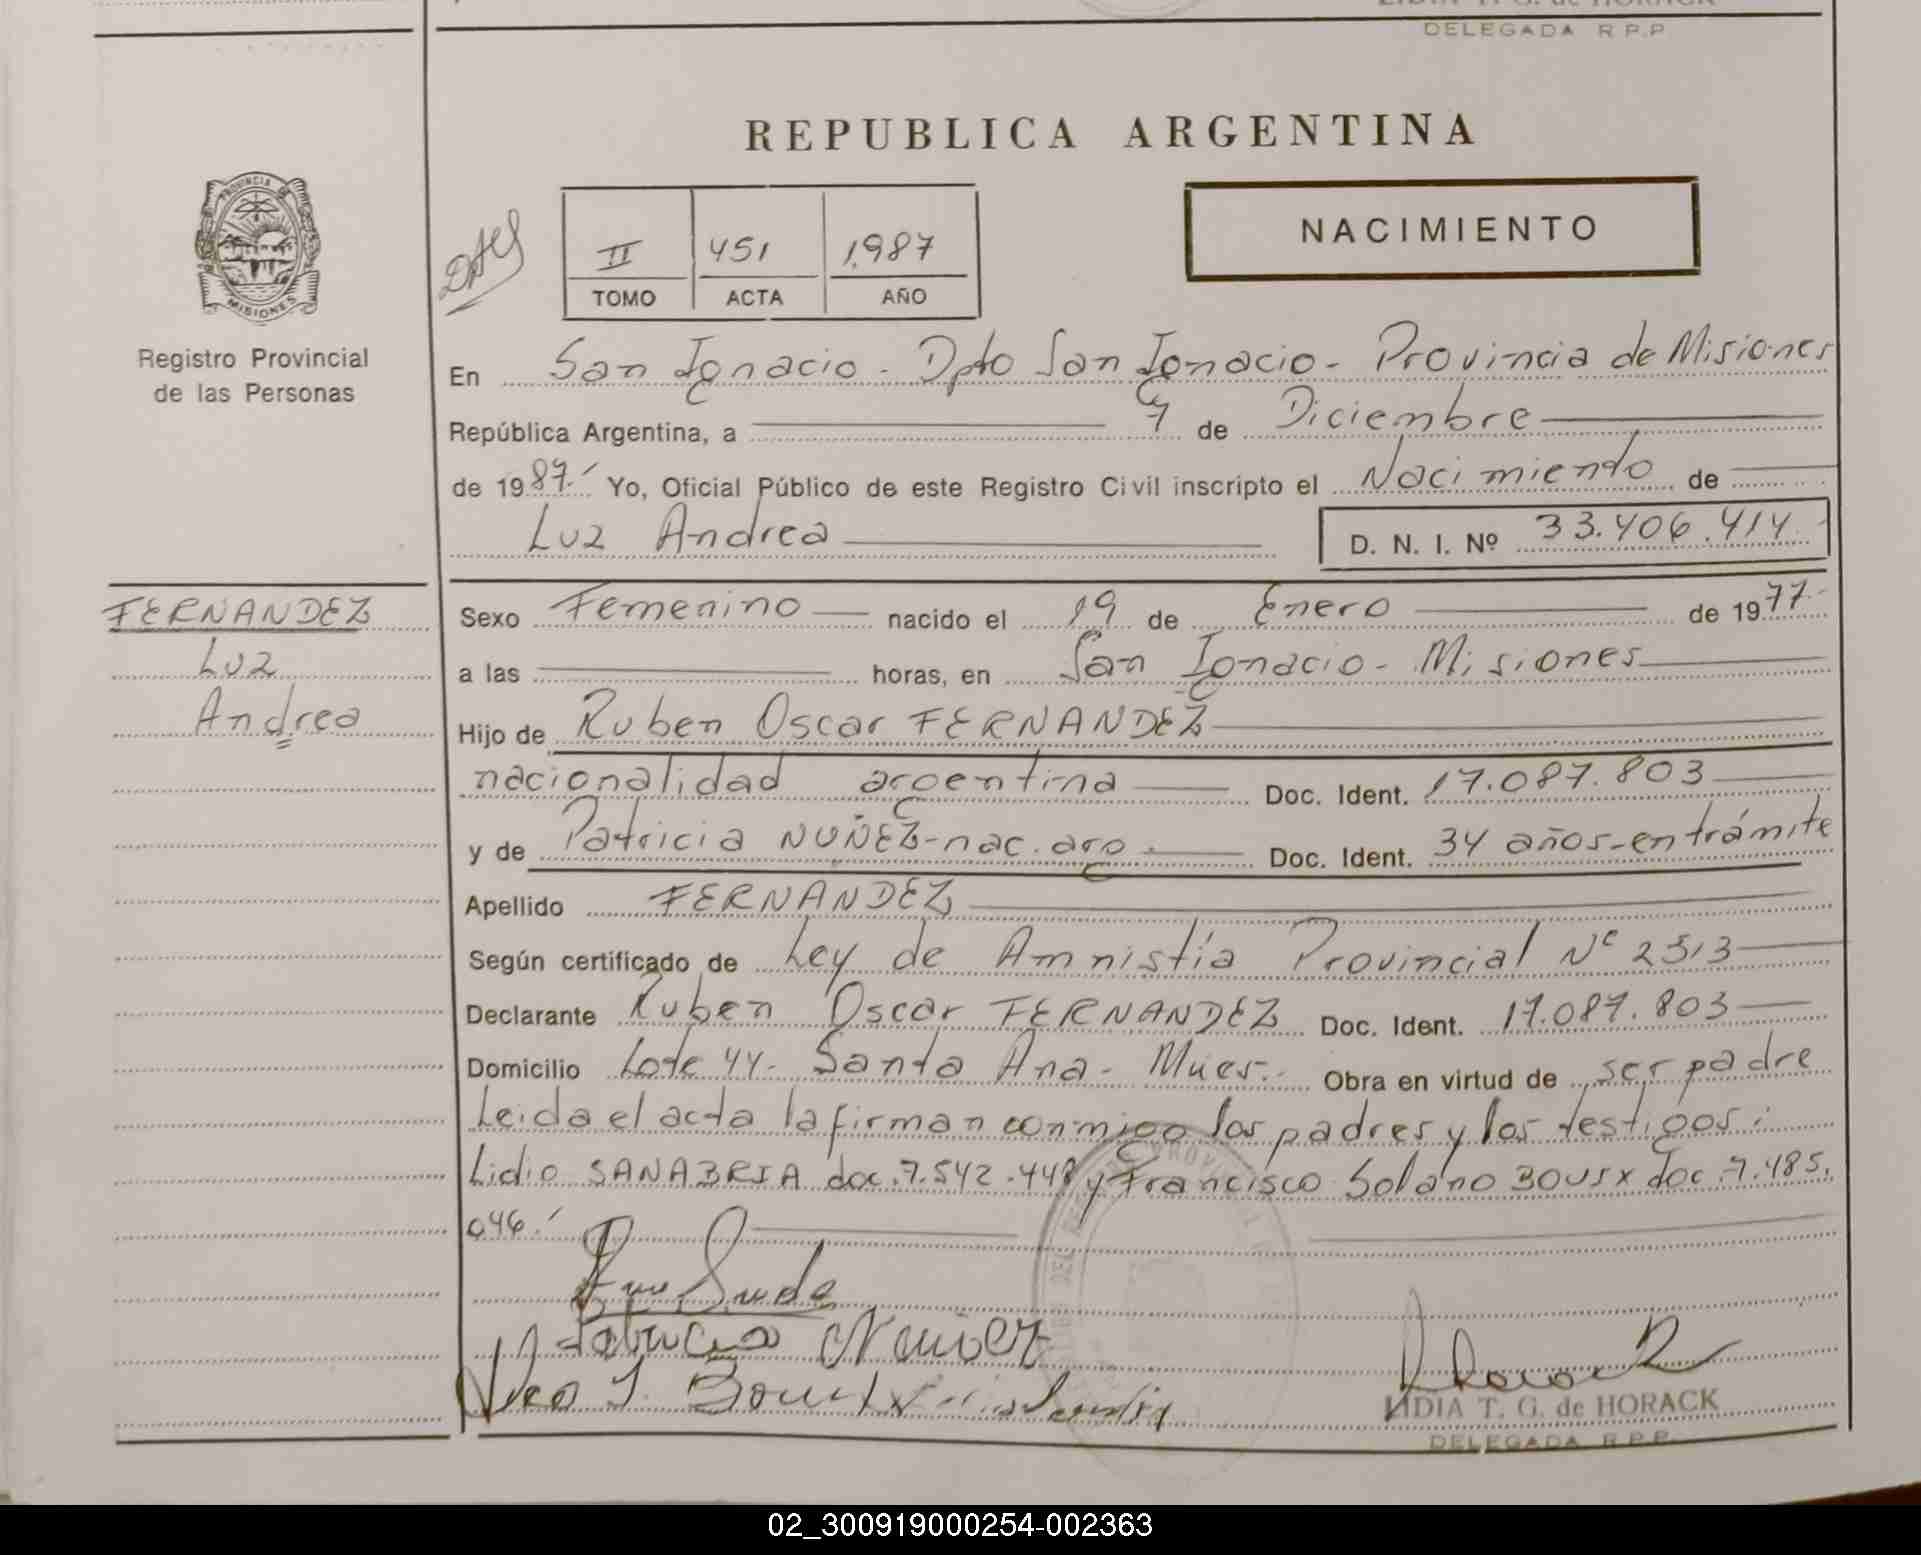 DELEGADA R.P.P
REPUBLICA ARGENTINA
NACIMIENTO
II 451 1987
TOMO ACTA AÑO
PROVINCIA DE MISIONES
Registro Provincial
de las Personas
En San Ignacio - Dpto San Ignacio - Provincia de Misiones
República Argentina, a 7 de Diciembre
de 1987 Yo, Oficial Público de este Registro Civil inscripto el Nacimiento de
Luz Andrea D. N. I. Nº 33.406.414
FERNANDEZ
Luz
Andrea
Sexo Femenino nacido el 19 de Enero de 1977
a las horas, en San Ignacio - Misiones
Hijo de Ruben Oscar FERNANDEZ
nacionalidad argentina Doc. Ident. 17.087.803
y de Patricia NUÑEZ - nac. arg. Doc. Ident. 34 años - en trámite
Apellido FERNANDEZ
Según certificado de Ley de Amnistía Provincial Nº 2513
Declarante Ruben Oscar FERNANDEZ Doc. Ident. 17.087.803
Domicilio Lote 44 - Santa Ana - Mnes. Obra en virtud de ser padre
Leida el acta la firman conmigo los padres y los testigos:
Lidio SANABRIA doc. 7.542.448 y Francisco Solano BOUIX doc. 7.485.
046.
LIDIA T. G. de HORACK
DELEGADA R.P.P.
02_300919000254-002363